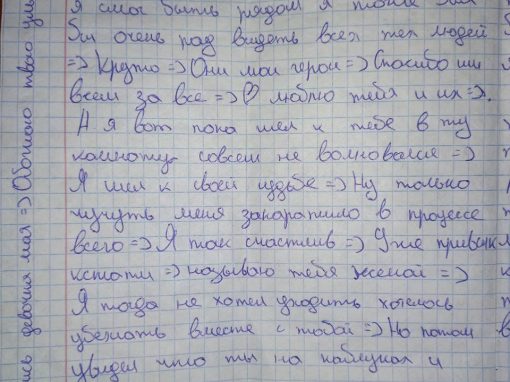 Я смог быть рядом я тоже был
бы очень рад видеть всех тех людей
=> Круто => Они мои герои => Спасибо им
всем за все => ♡ люблю тебя и их =>.
А я вот пока шел к тебе в ту
комнату совсем не волновался =>
Я шел к своей судьбе => Ну только
чучуть меня закоратило в процессе
всего => Я так счастлив => Уже привык
кстати => называю тебя женой =>
Я тогда не хотел уходить хотелось
убежать вместе с тобой => Но потом
увидел что ты на каблуках и
девочка моя => Обожаю твою